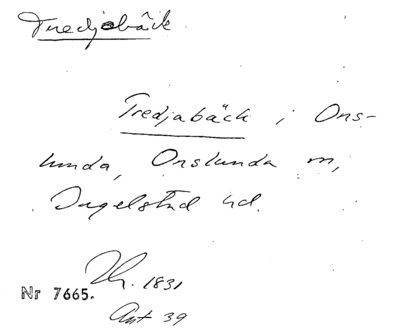 Tredjabäck
Tredjabäck i Ons-
lunda, Onslunda sn,
Ingelstad hd.
1831
Nr 7665.
Ant 39